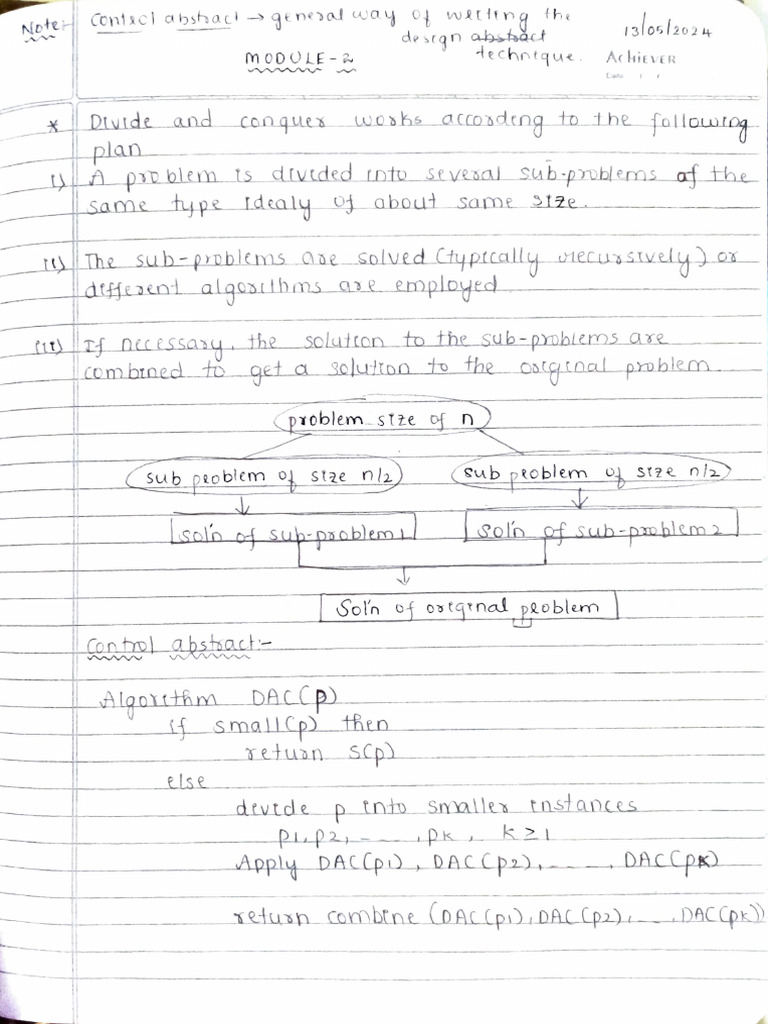 Note:- Control abstract → general way of writing the
design abstract technique.
13/05/2024
MODULE-2
AchiEVER
Date
* Divide and conquer works according to the following
plan
i) A problem is divided into several sub-problems of the
same type idealy of about same size.
ii) The sub-problems are solved (typically recursively) or
different algorithms are employed
iii) If necessary, the solution to the sub-problems are
combined to get a solution to the original problem.
problem size of n
sub problem of size n/2 sub problem of size n/2
Sol'n of sub-problem1 Sol'n of sub-problem2
Sol'n of original problem
Control abstract:-
Algorithm DAC(p)
if small(p) then
return s(p)
else
divide p into smaller instances
p1,p2,-...,pk, k≥1
Apply DAC(p1), DAC(p2),-...., DAC(pk)
return combine (DAC(p1),DAC(p2),-...,DAC(pk))